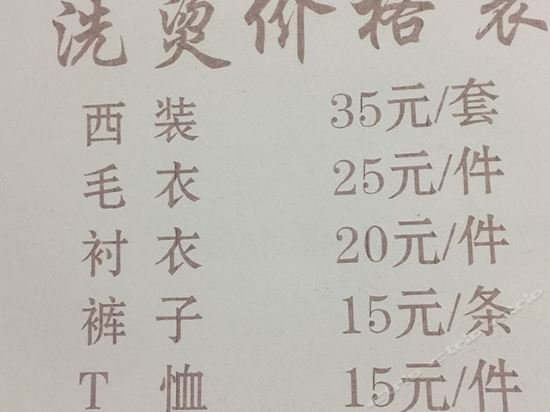 洗烫价格表
西装 35元/套
毛衣 25元/件
衬衣 20元/件
裤子 15元/条
T恤 15元/件